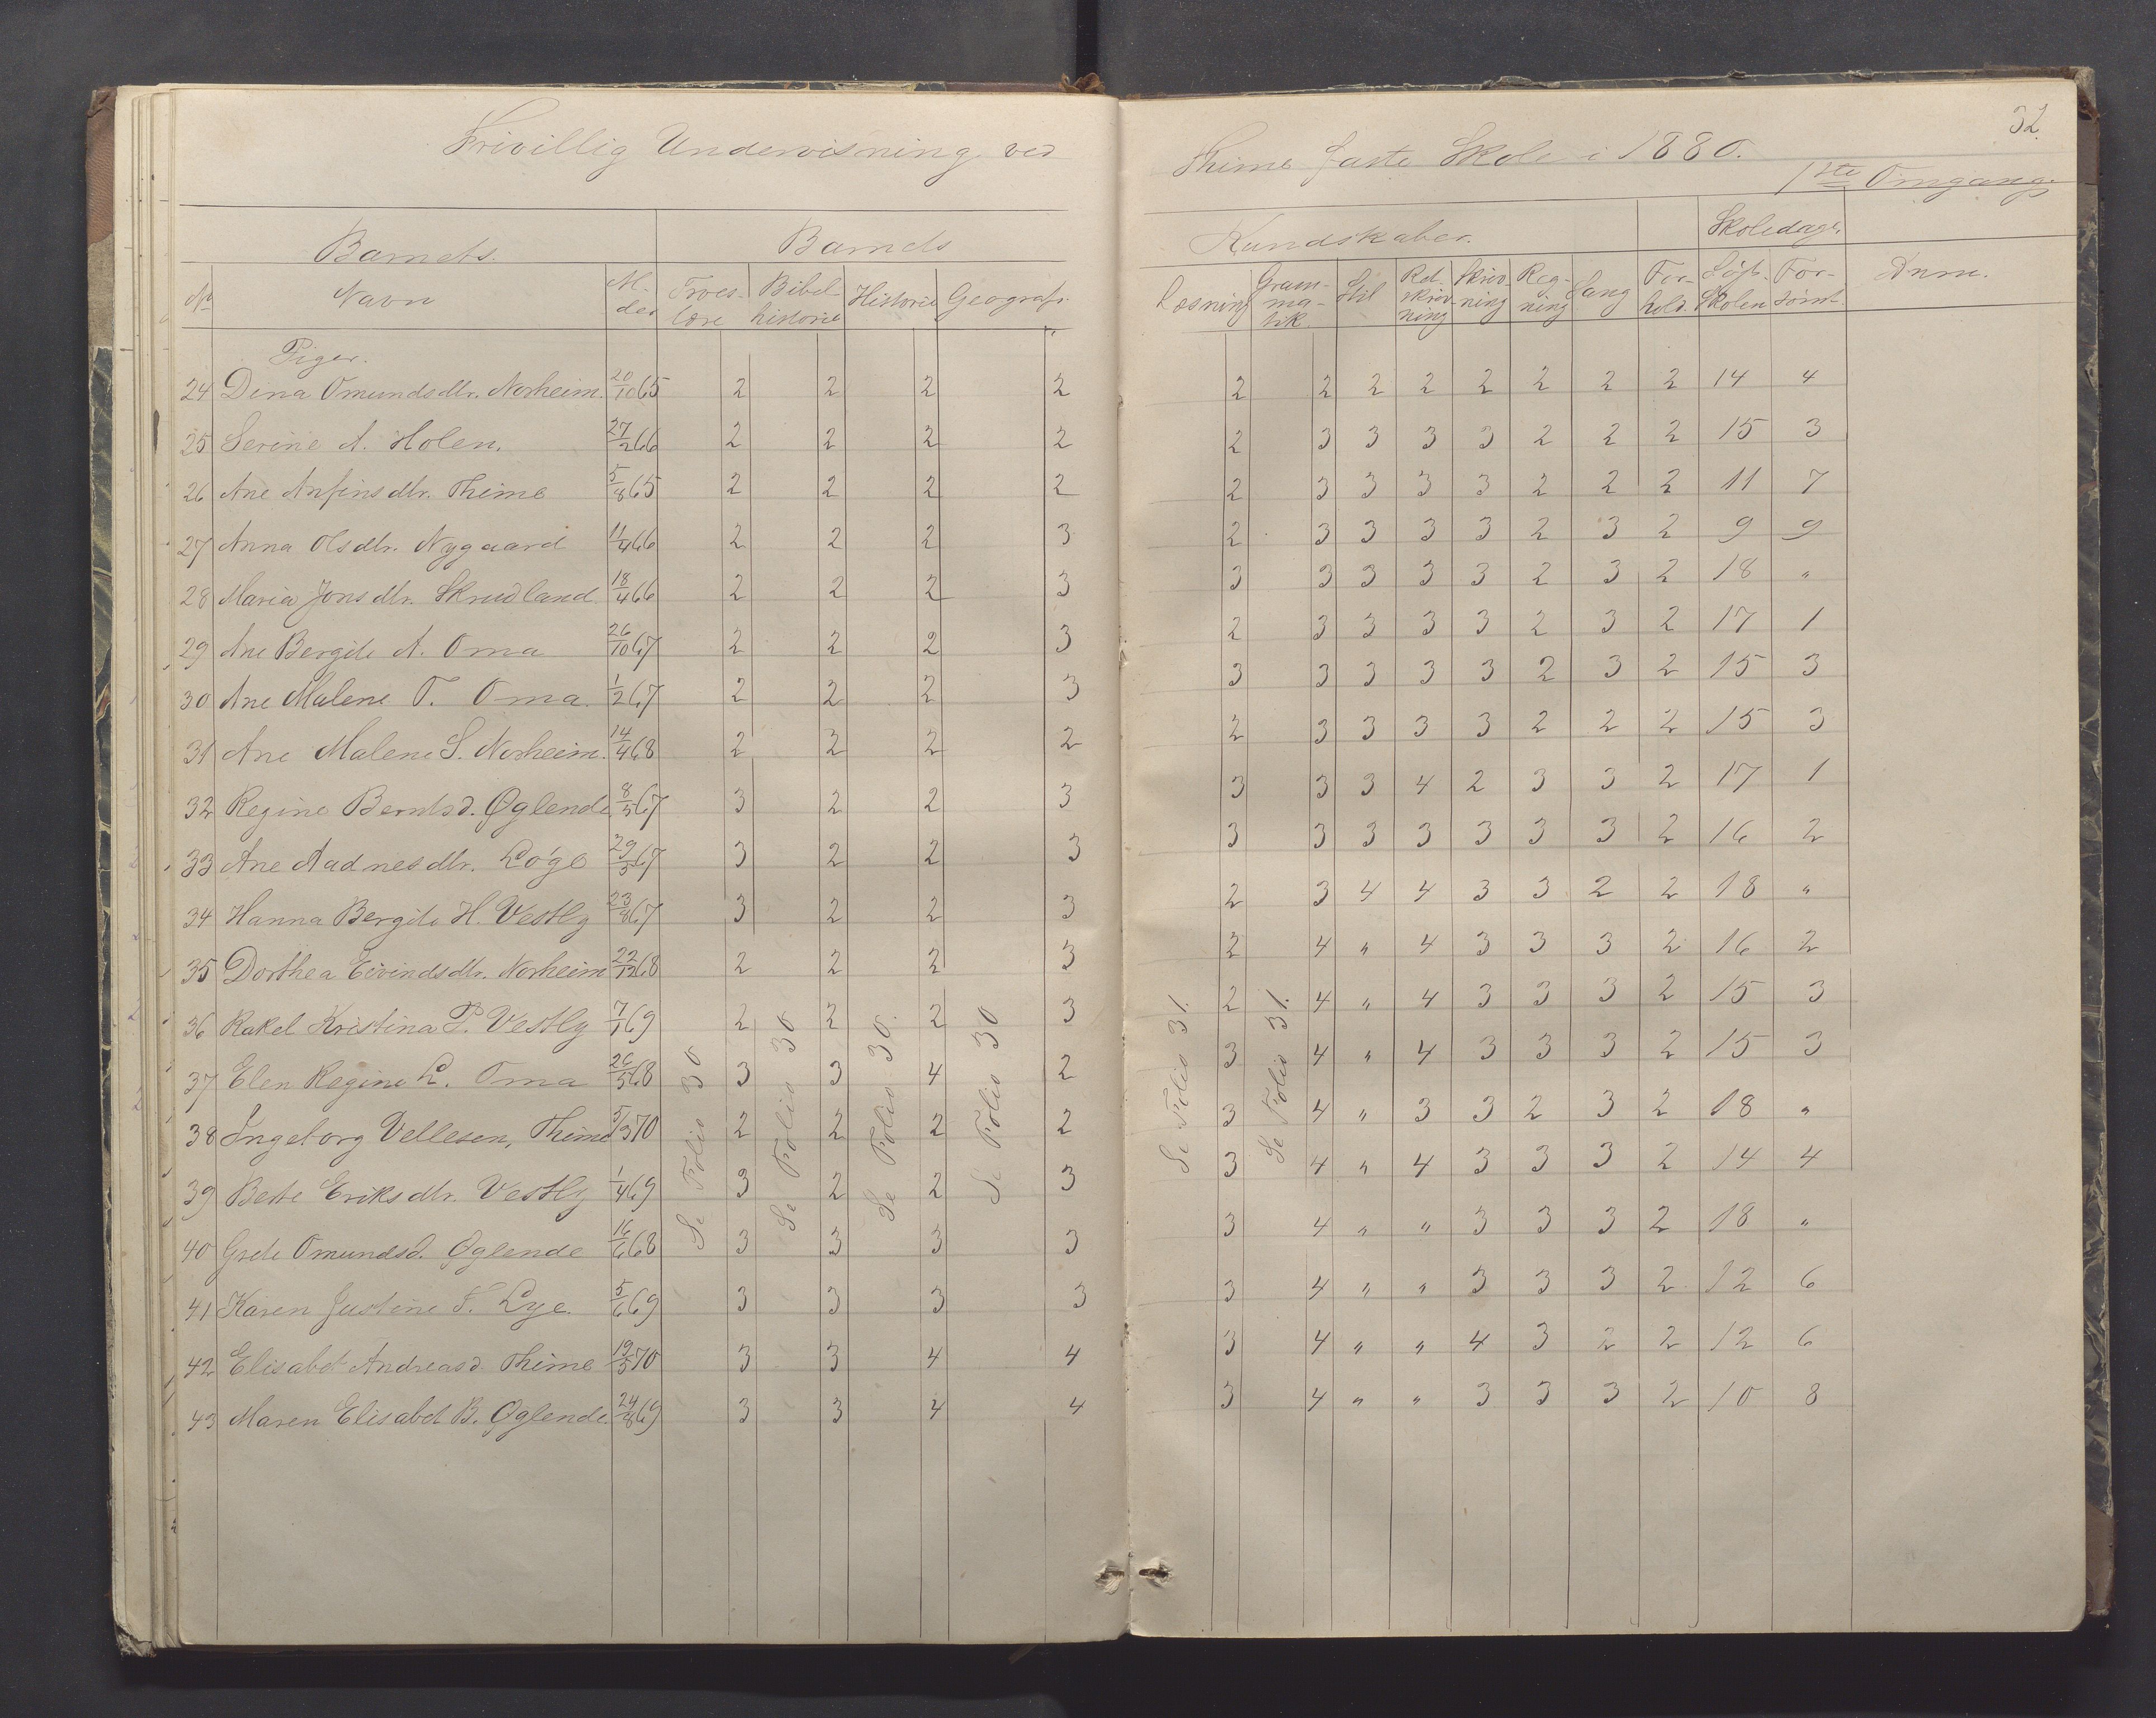 Frivillig Undervisning ved Thime faste Skole i 1880.
32.
1ste Omgang.
Barnets. Barnets Kundskaber. Skoledage.
No Navn Al-der Troes-lære Bibel-historie Historie Geografi. Læsning Gram-ma-tik. Stil Ret-skriv-ning Skriv-ning Reg-ning Sang For-hold. Søgt Skolen For-sømt. Anm.
Piger.
24 Dina Omundsdtr. Norheim. 20/10 65 2 2 2 2 2 2 2 2 2 2 2 2 14 4
25 Serine A. Holen. 27/2 66 2 2 2 2 2 3 3 3 3 2 2 2 15 3
26 Ane Anfinsdtr. Thime 5/8 65 2 2 2 2 2 3 3 3 3 2 2 2 11 7
27 Anna Olsdtr. Nygaard 11/4 66 2 2 2 3 2 3 3 3 3 2 3 2 9 9
28 Maria Jonsdtr. Skrudland 18/4 66 2 2 2 3 3 3 3 3 3 2 3 2 18 "
29 Ane Bergite A. Oma 26/10 67 2 2 2 3 2 3 3 3 3 2 3 2 17 1
30 Ane Malene T. Oma. 1/2 67 2 2 2 3 3 3 3 3 3 2 3 2 15 3
31 Ane Malene S. Norheim. 14/4 68 2 2 2 2 2 3 3 3 3 2 2 2 15 3
32 Regine Berntsd. Øglende 8/5 67 3 2 2 3 3 3 3 4 2 3 3 2 17 1
33 Ane Aadnesdtr. Løge 29/5 67 3 2 2 3 3 3 3 3 3 3 3 2 16 2
34 Hanna Bergite H. Vestly 23/8 67 3 2 2 3 2 3 4 4 3 3 2 2 18 "
35 Dorthea Eivindsdtr. Norheim 22/12 68 2 2 2 3 2 4 " 4 3 3 3 2 16 2
36 Rakel Kristina P. Vestly 7/1 69 2 2 2 3 2 4 " 4 3 3 3 2 15 3
37 Elen Regine L. Oma 26/5 68 3 3 4 2 3 4 " 4 3 3 3 2 15 3
38 Ingeborg Vellesen, Thime 5/3 70 2 2 2 2 3 4 " 3 3 2 3 2 18 "
39 Berte Eriksdtr. Vestly 1/4 69 3 2 2 3 3 4 " 4 3 3 3 2 14 4
40 Grete Omundsd. Øglende 16/6 68 3 3 3 3 3 4 " " 3 3 3 2 18 "
41 Karen Justine T. Lye. 5/6 69 3 3 3 3 3 4 " " 3 3 3 2 12 6
42 Elisabet Andreasd. Thime 19/5 70 3 3 4 4 3 4 " " 4 3 2 2 12 6
43 Maren Elisabet B. Øglende. 24/8 69 3 3 4 4 3 4 " " 3 3 3 2 10 8
Se Folio 30
Se Folio 30
Se Folio 30.
Se Folio 30
Se Folio 31.
Se Folio 31.